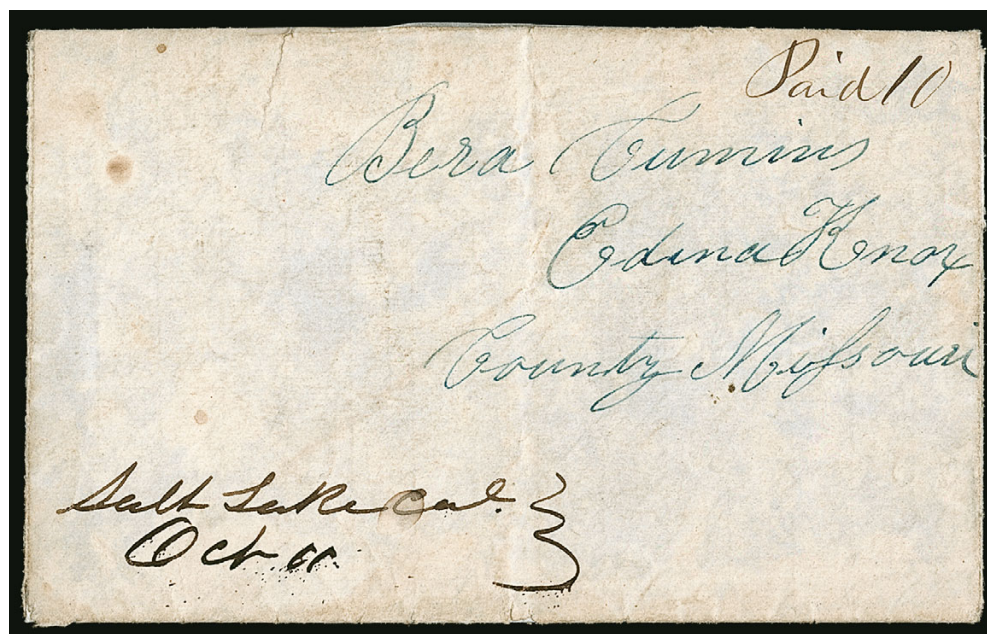 Paid 10
Bera Cumins
Edina Knox
County Missouri
Salt Lake Cal.
Oct. 11